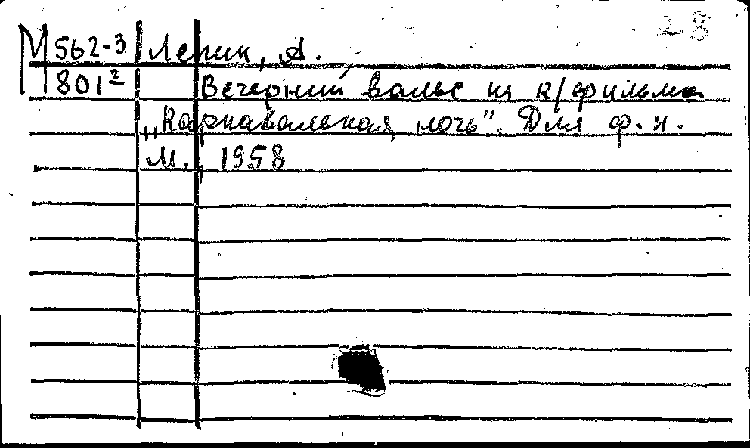 28
М 562-3 Лепин, А.
801² Вечерний вальс из к/фильма
„Карнавальная ночь". Для ф.-п.
М., 1958